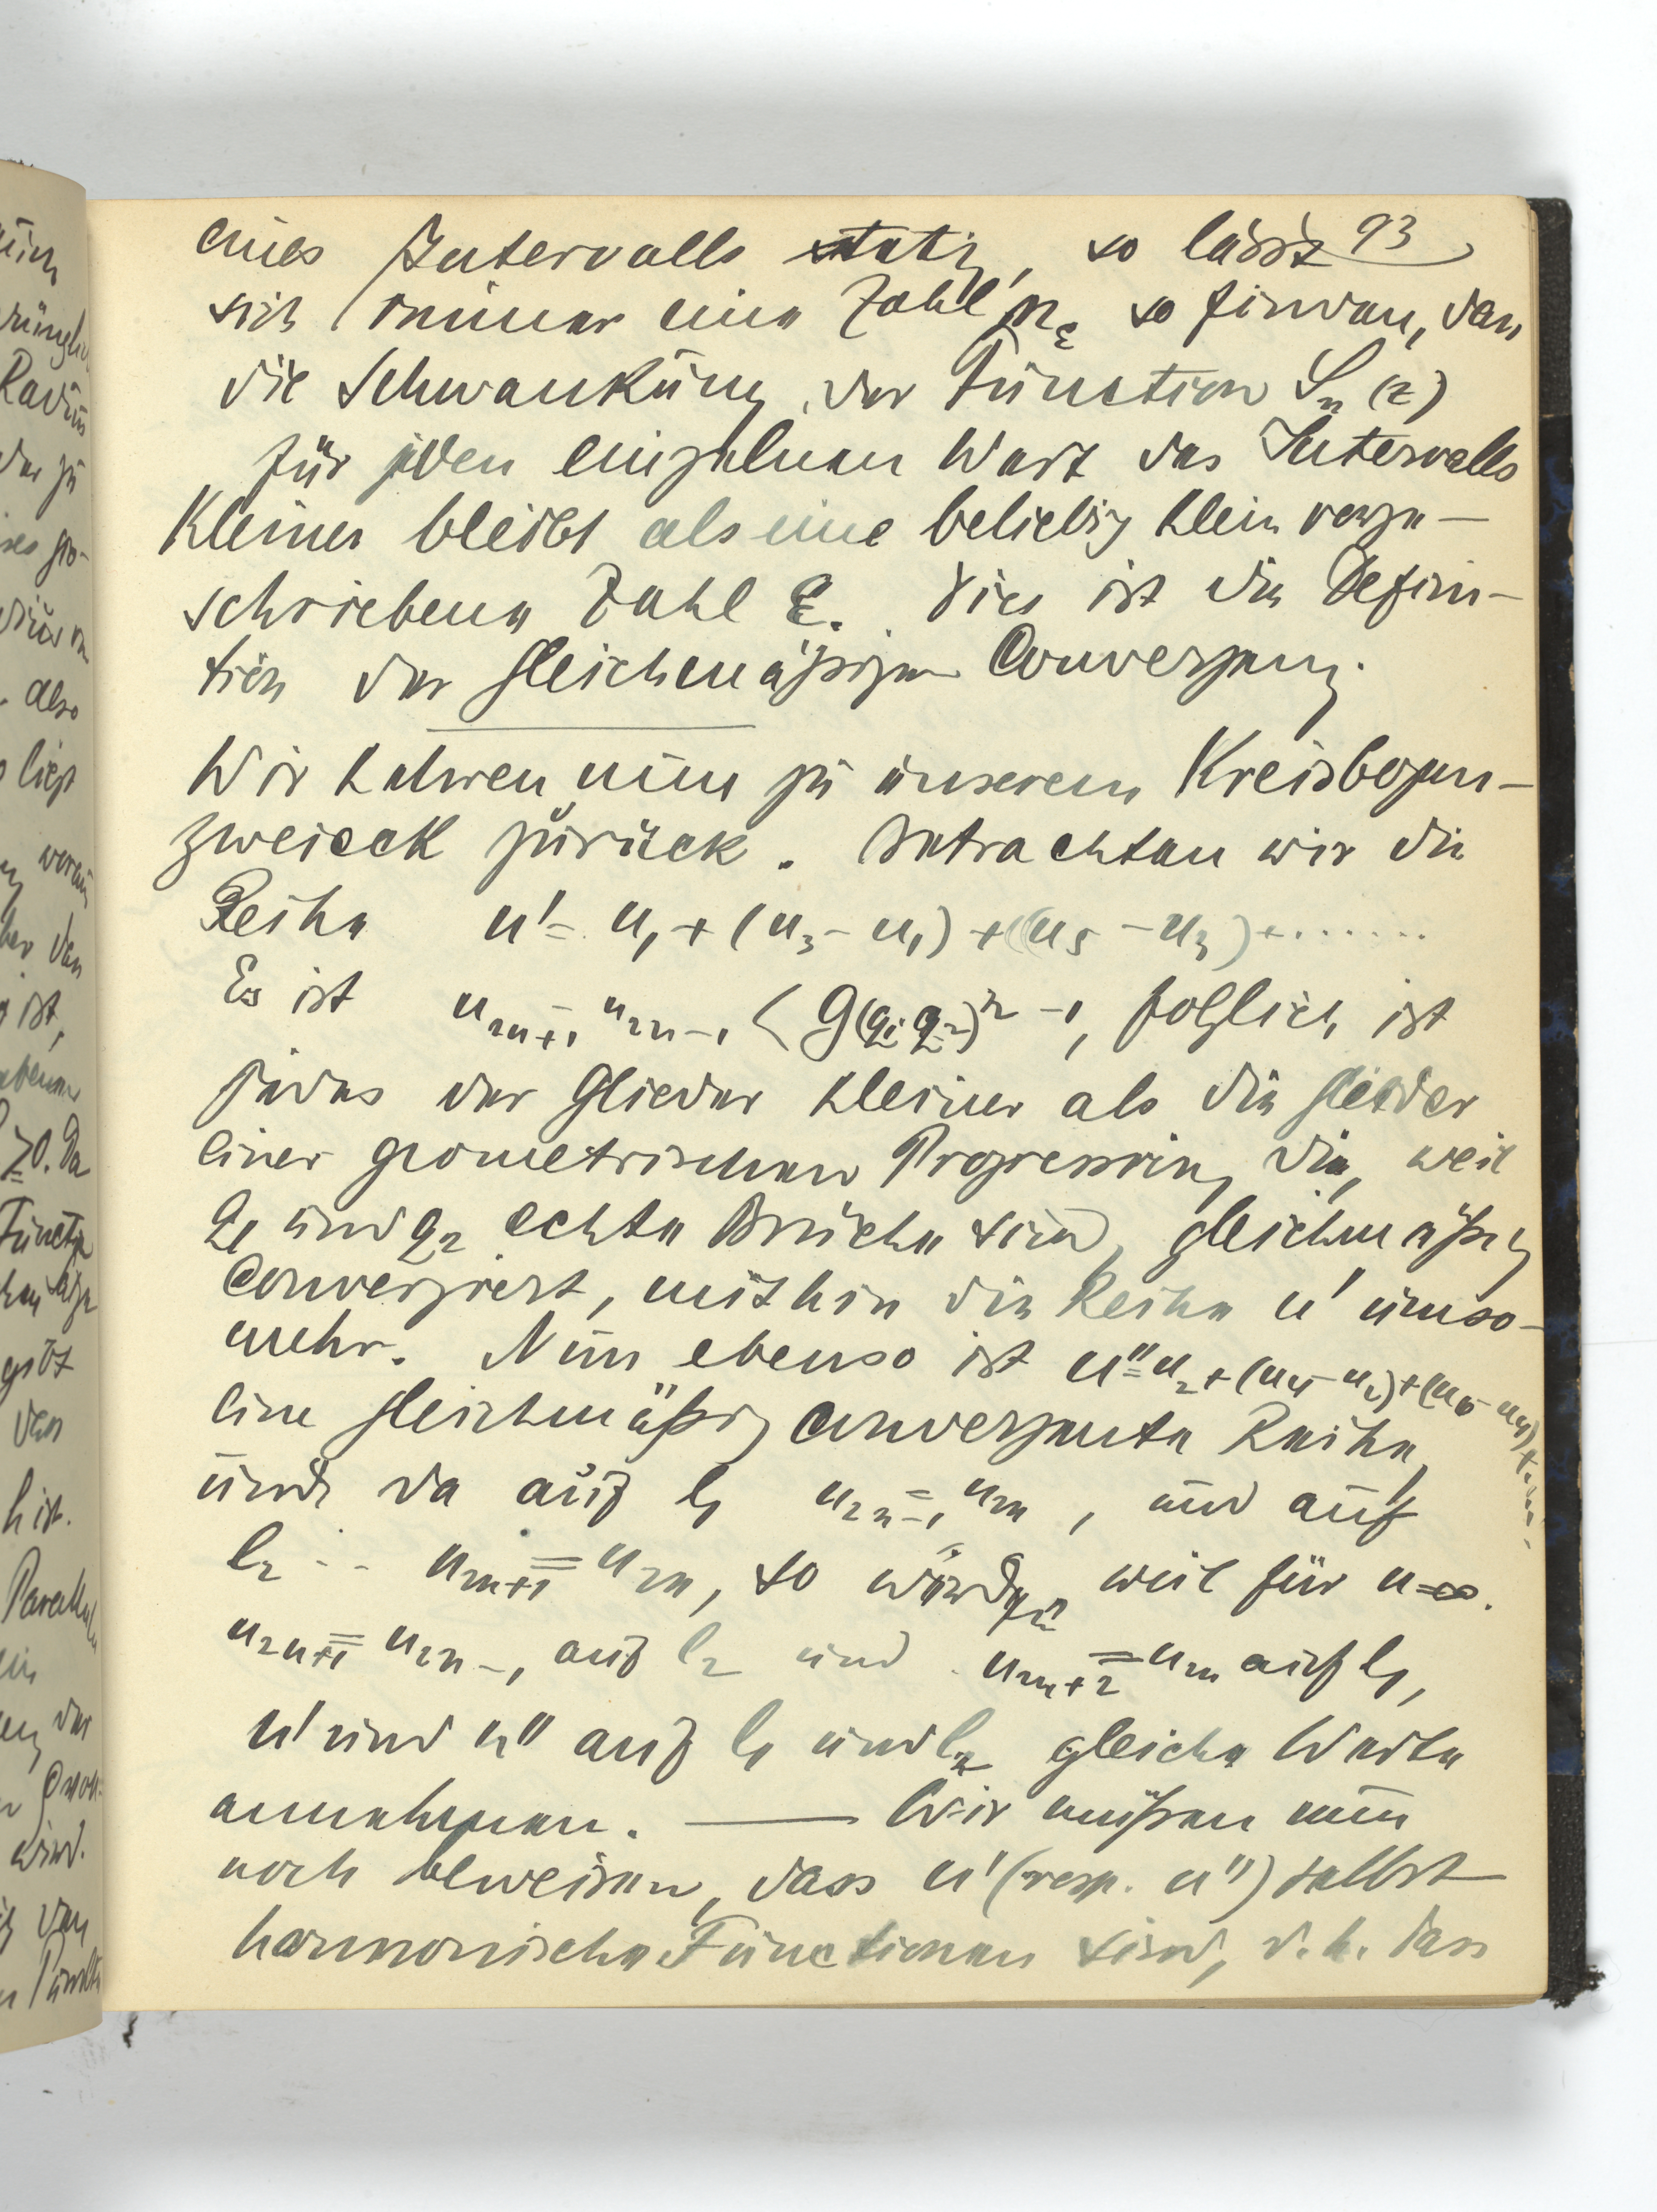 93
eines Intervalls stetig, so lässt
sich immer eine Zahl n_ε so finden, dass
die Schwankung der Function S_n(z)
für jeden einzelnen Wert des Intervalls
kleiner bleibt als eine beliebig klein vorge-
schriebene Zahl ε. Dies ist die Defini-
tion der gleichmäßigen Convergenz.
Wir kehren nun zu unserem Kreisbogen-
zweieck zurück. Betrachten wir die
Reihe u' = u_1 + (u_3 - u_1) + (u_5 - u_3) + .......
Es ist u_{2n+1} - u_{2n-1} < G(q_1 q_2)^{n-1}, folglich ist
jedes der Glieder kleiner als die Glieder
einer geometrischen Progression, die, weil
q_1 und q_2 echte Brüche sind, gleichmäßig
convergiert, mithin die Reihe u' umso-
mehr. Nun ebenso ist u'' = u_2 + (u_4 - u_2) + (u_6 - u_4) + .....
eine gleichmäßig convergente Reihe,
und da auf l_1 u_{2n-1} = u_{2n}, und auf
l_2 -- u_{2n+1} = u_{2n}, so würden, weil für n=∞.
u_{2n+1} = u_{2n-1} auf l_2 und u_{2n+2} = u_{2n} auf l_1,
u' und u'' auf l_1 und l_2 gleiche Werte
annehmen. — Wir müßen nun
noch beweisen, dass u' (resp. u'') selbst
harmonische Functionen sind, d.h. dass